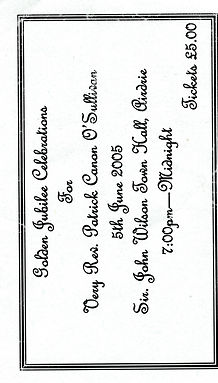 Golden Jubilee Celebrations
For
Very Rev. Patrick Canon O'Sullivan
5th June 2005
Sir. John Wilson Town Hall, Airdrie
7:00pm—Midnight
Tickets £5.00